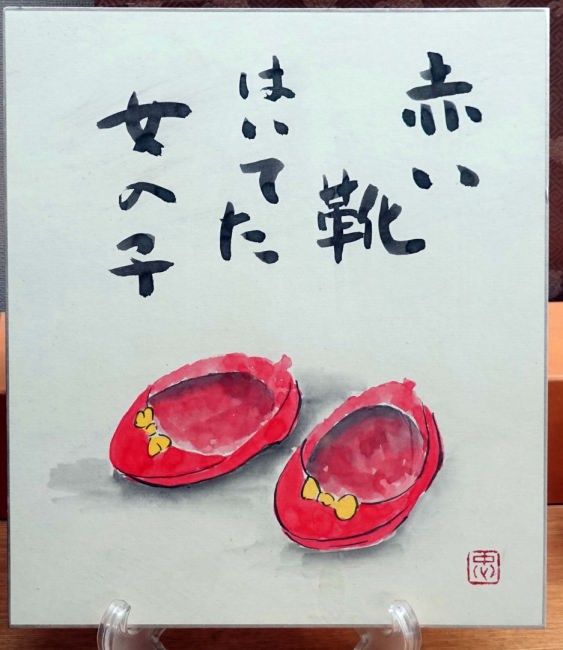 赤い
靴
はいてた
女の子
忠